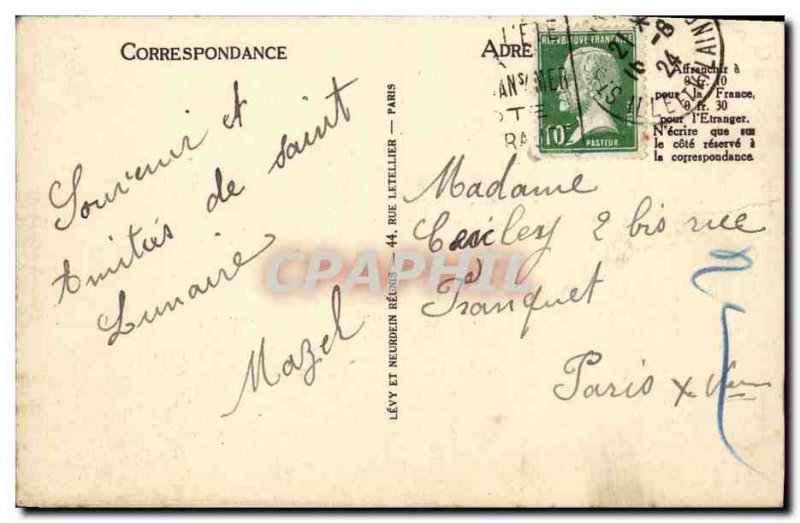 CORRESPONDANCE
Souvenir et
Amitiés de saint
Lunaire
Mazel
LÉVY ET NEURDEIN RÉUNIS — 44, RUE LETELLIER — PARIS
ADRE
L'ÉTÉ
MER
REPUBLIQUE FRANÇAISE
10c
PASTEUR
ILLE ET VILAINE
21 *
16 -8
24
Affranchir à
0 fr. 10
pour la France,
0 fr. 30
pour l'Etranger.
N'écrire que sur
le côté réservé à
la correspondance.
Madame
2 bis rue
Franquet
Paris XVème
CPAPHIL